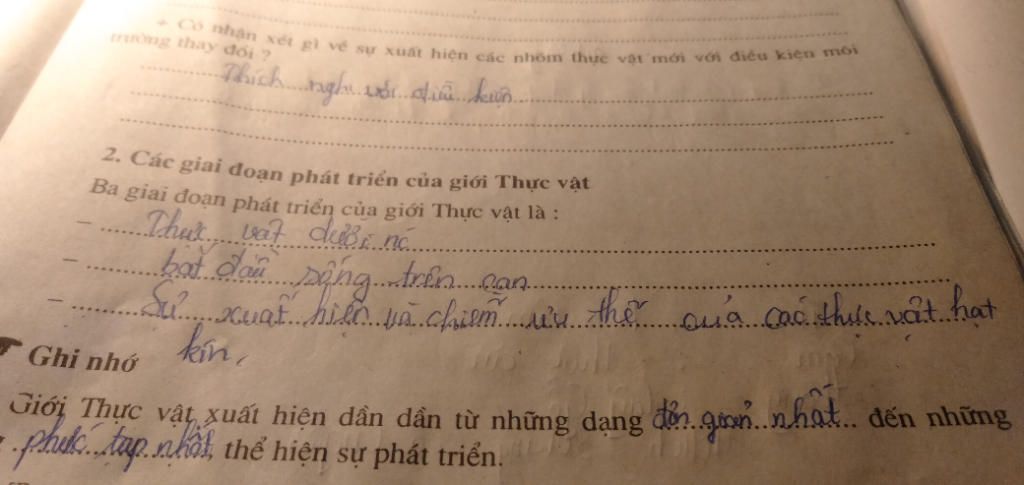 + Có nhận xét gì về sự xuất hiện các nhóm thực vật mới với điều kiện môi
trường thay đổi ?
Thích nghi với điều kiện
2. Các giai đoạn phát triển của giới Thực vật
Ba giai đoạn phát triển của giới Thực vật là :
- Thực vật dưới nc
- bắt đầu sống trên cạn
- Sự xuất hiện và chiếm ưu thế của các thực vật hạt
kín.
Ghi nhớ
Giới Thực vật xuất hiện dần dần từ những dạng đơn giản nhất đến những
phức tạp nhất, thể hiện sự phát triển.